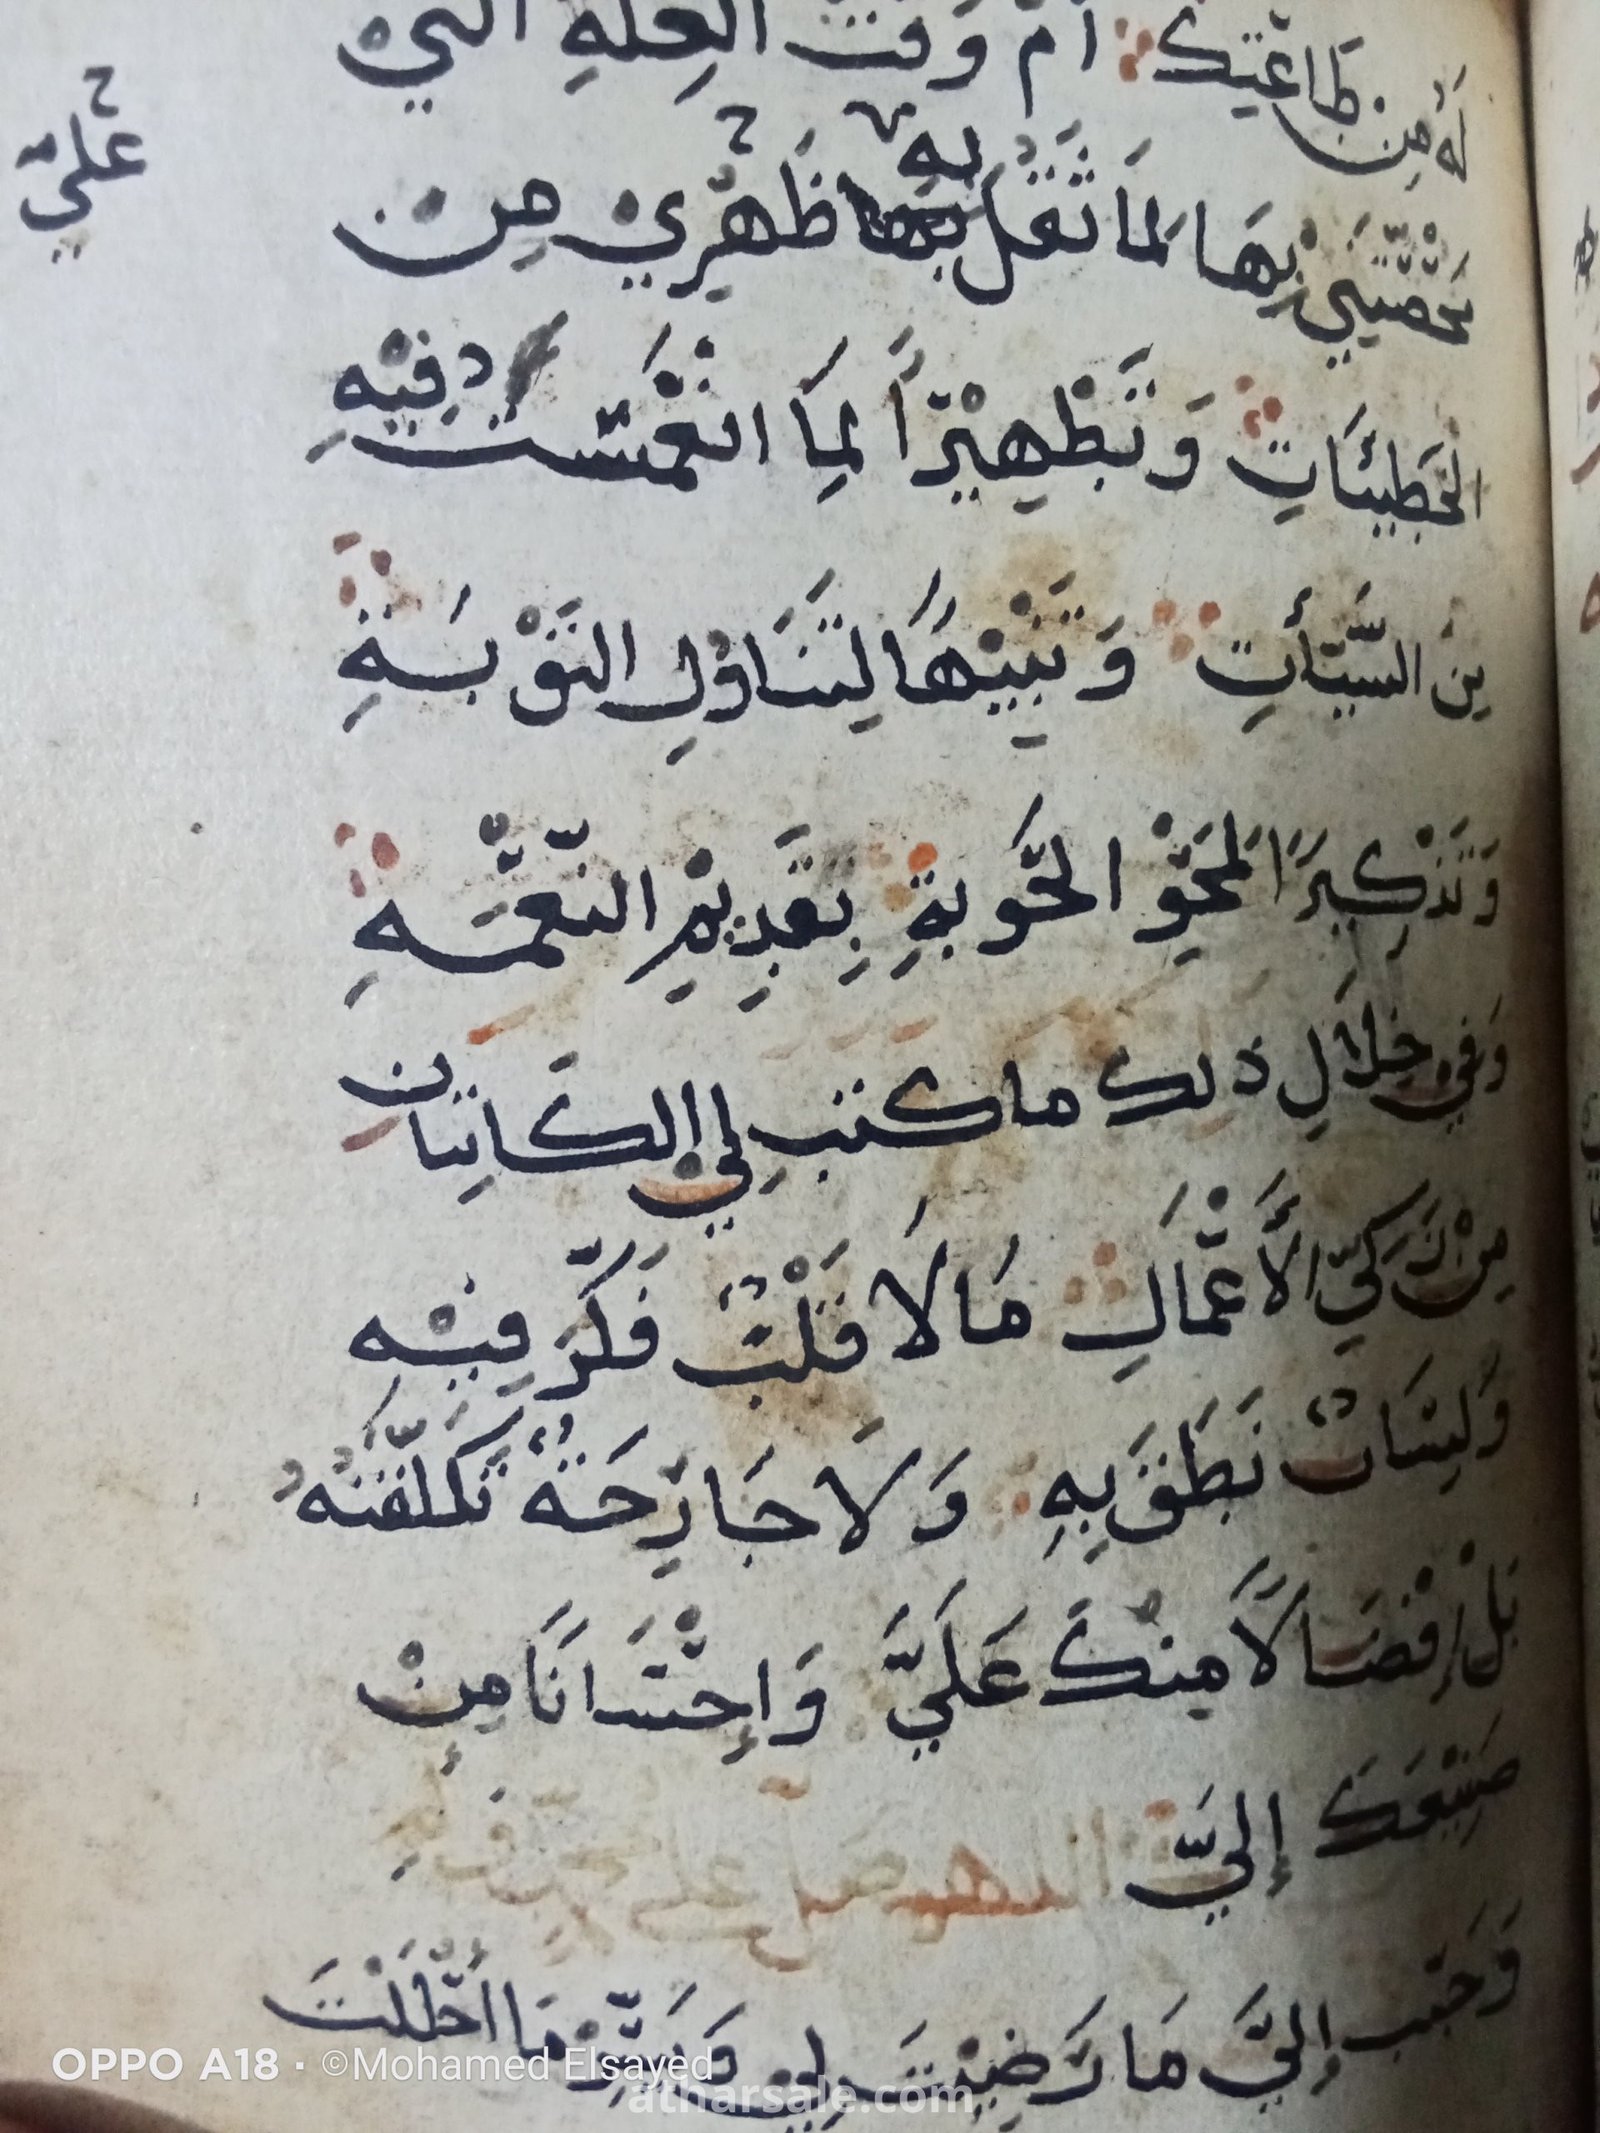 لَهُ مِن طَاعَتِكَ أم وَقْتَ العِلَّةِ التي
مَحَّصْتَنِي بِهَا لِمَا ثَقُلَ به ظَهْرِي مِنَ
عَلَيَّ
الخَطِيئَاتِ وَتَطْهِيْراً لِمَا انْغَمَسْتُ فِيْهِ
مِنَ السَّيِّأَتِ وَتَنْبِيْهًا لِتَنَاوُلِ التَّوْبَةِ
وَتَذْكِيرًا لِمَحْوِ الحَوبَةِ بِقَدِيْمِ النِّعْمَةِ
وَفي خِلَالِ ذلك ما كتب لي الكَاتِبَانِ
مِنْ زَكيِّ الأَعْمَالِ مَا لَا قَلْبٌ فَكَّرَ فِيْهِ
وَلِسَانٌ نَطَقَ بِهِ وَلَا جَارِحَةٌ تَكَلَّفَتْهُ
بَلْ إِفْضَالًا مِنْكَ عَلَيَّ وَإِحْسَانَا مِنْ
صَنِيْعِكَ إِليَّ
وَحَبِّب إِليَّ مَا رَضِيْتَ لي وَيَسِّرْ مَا أَحْلَلْتَ
OPPO A18 · ©Mohamed Elsayed
atharsale.com